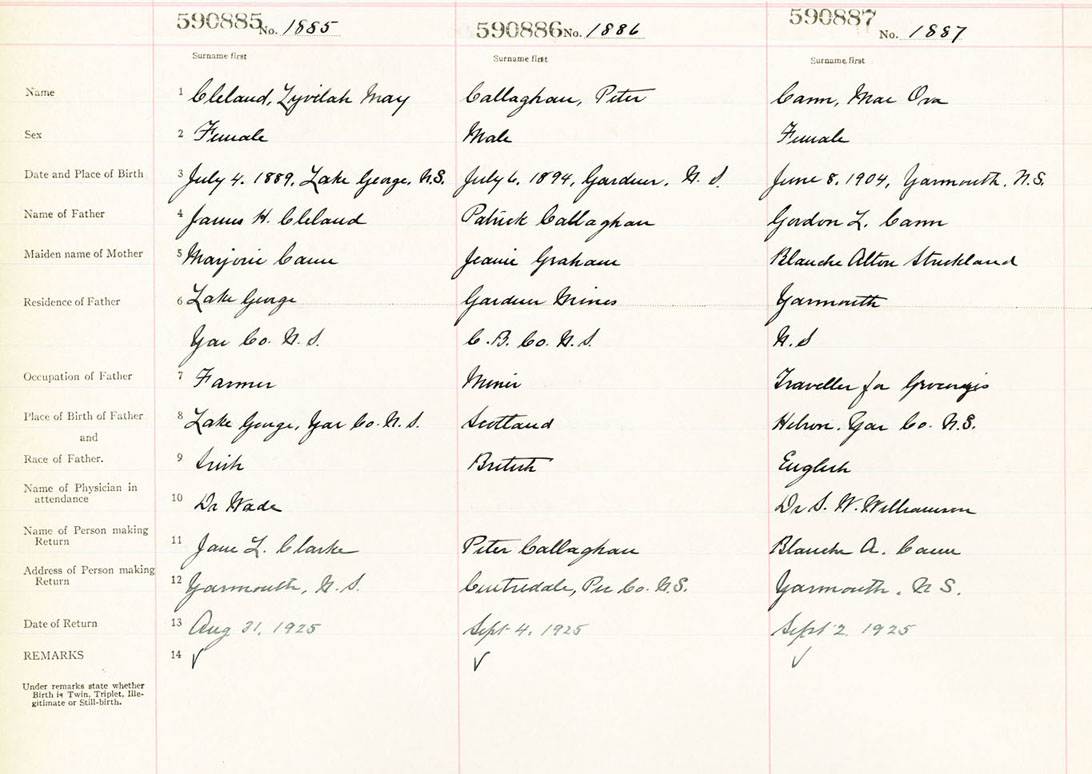 590885 No. 1885 590886 No. 1886 590887 No. 1887
Surname first Surname first Surname first
Name 1 Cleland, Zyvilah May Callaghan, Peter Cann, Mae Ora
Sex 2 Female Male Female
Date and Place of Birth 3 July 4. 1889, Lake George, N.S. July 6, 1894, Gardner, N. S. June 8, 1904, Yarmouth, N.S.
Name of Father 4 James H. Cleland Patrick Callaghan Gordon L. Cann
Maiden name of Mother 5 Marjorie Cann Jeanie Graham Blanche Alton Strickland
Residence of Father 6 Lake George Gardner Mines Yarmouth
Yar Co. N. S. C. B. Co. N. S. N. S
Occupation of Father 7 Farmer Miner Traveller for
Place of Birth of Father 8 Lake George, Yar Co. N. S. Scotland Hebron. Yar Co. N.S.
and
Race of Father. 9 Irish British English
Name of Physician in
attendance 10 Dr Wade Dr S. W. Williamson
Name of Person making
Return 11 Jane L. Clarke Peter Callaghan Blanche A. Cann
Address of Person making
Return 12 Yarmouth, N. S. Centredale, Pic Co. N.S. Yarmouth, N S.
Date of Return 13 Aug 31, 1925 Sept 4. 1925 Sept 2 1925
REMARKS 14
Under remarks state whether
Birth is Twin, Triplet, Ille-
gitimate or Still-birth.